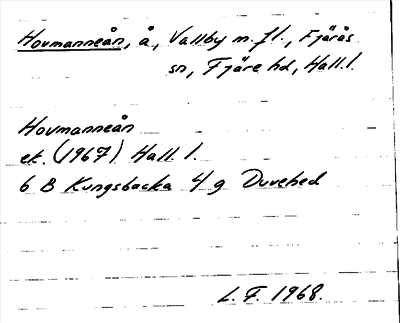 Hovmanneån, å, Vallby m.fl., Fjärås
sn, Fjäre hd, Hall.l.
Hovmanneån
ek. (1967) Hall. l.
6 B Kungsbacka 4 g Duvehed
L. F. 1968.